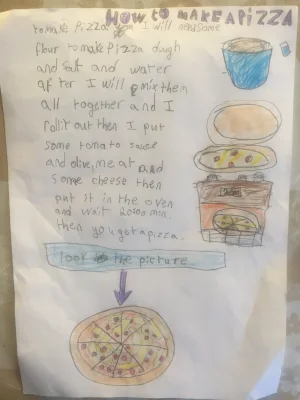 HOW to MAKE A PIZZA
to make Pizza I will need some
flour to make Pizza dugh
and Salt and water
af ter I will mix them
all together and I
roll it out then I put
some tomato sauce
and olive, meat and
some cheese then
put it in the oven
and wait 20:00 min.
then you get a pizza.
look the picture